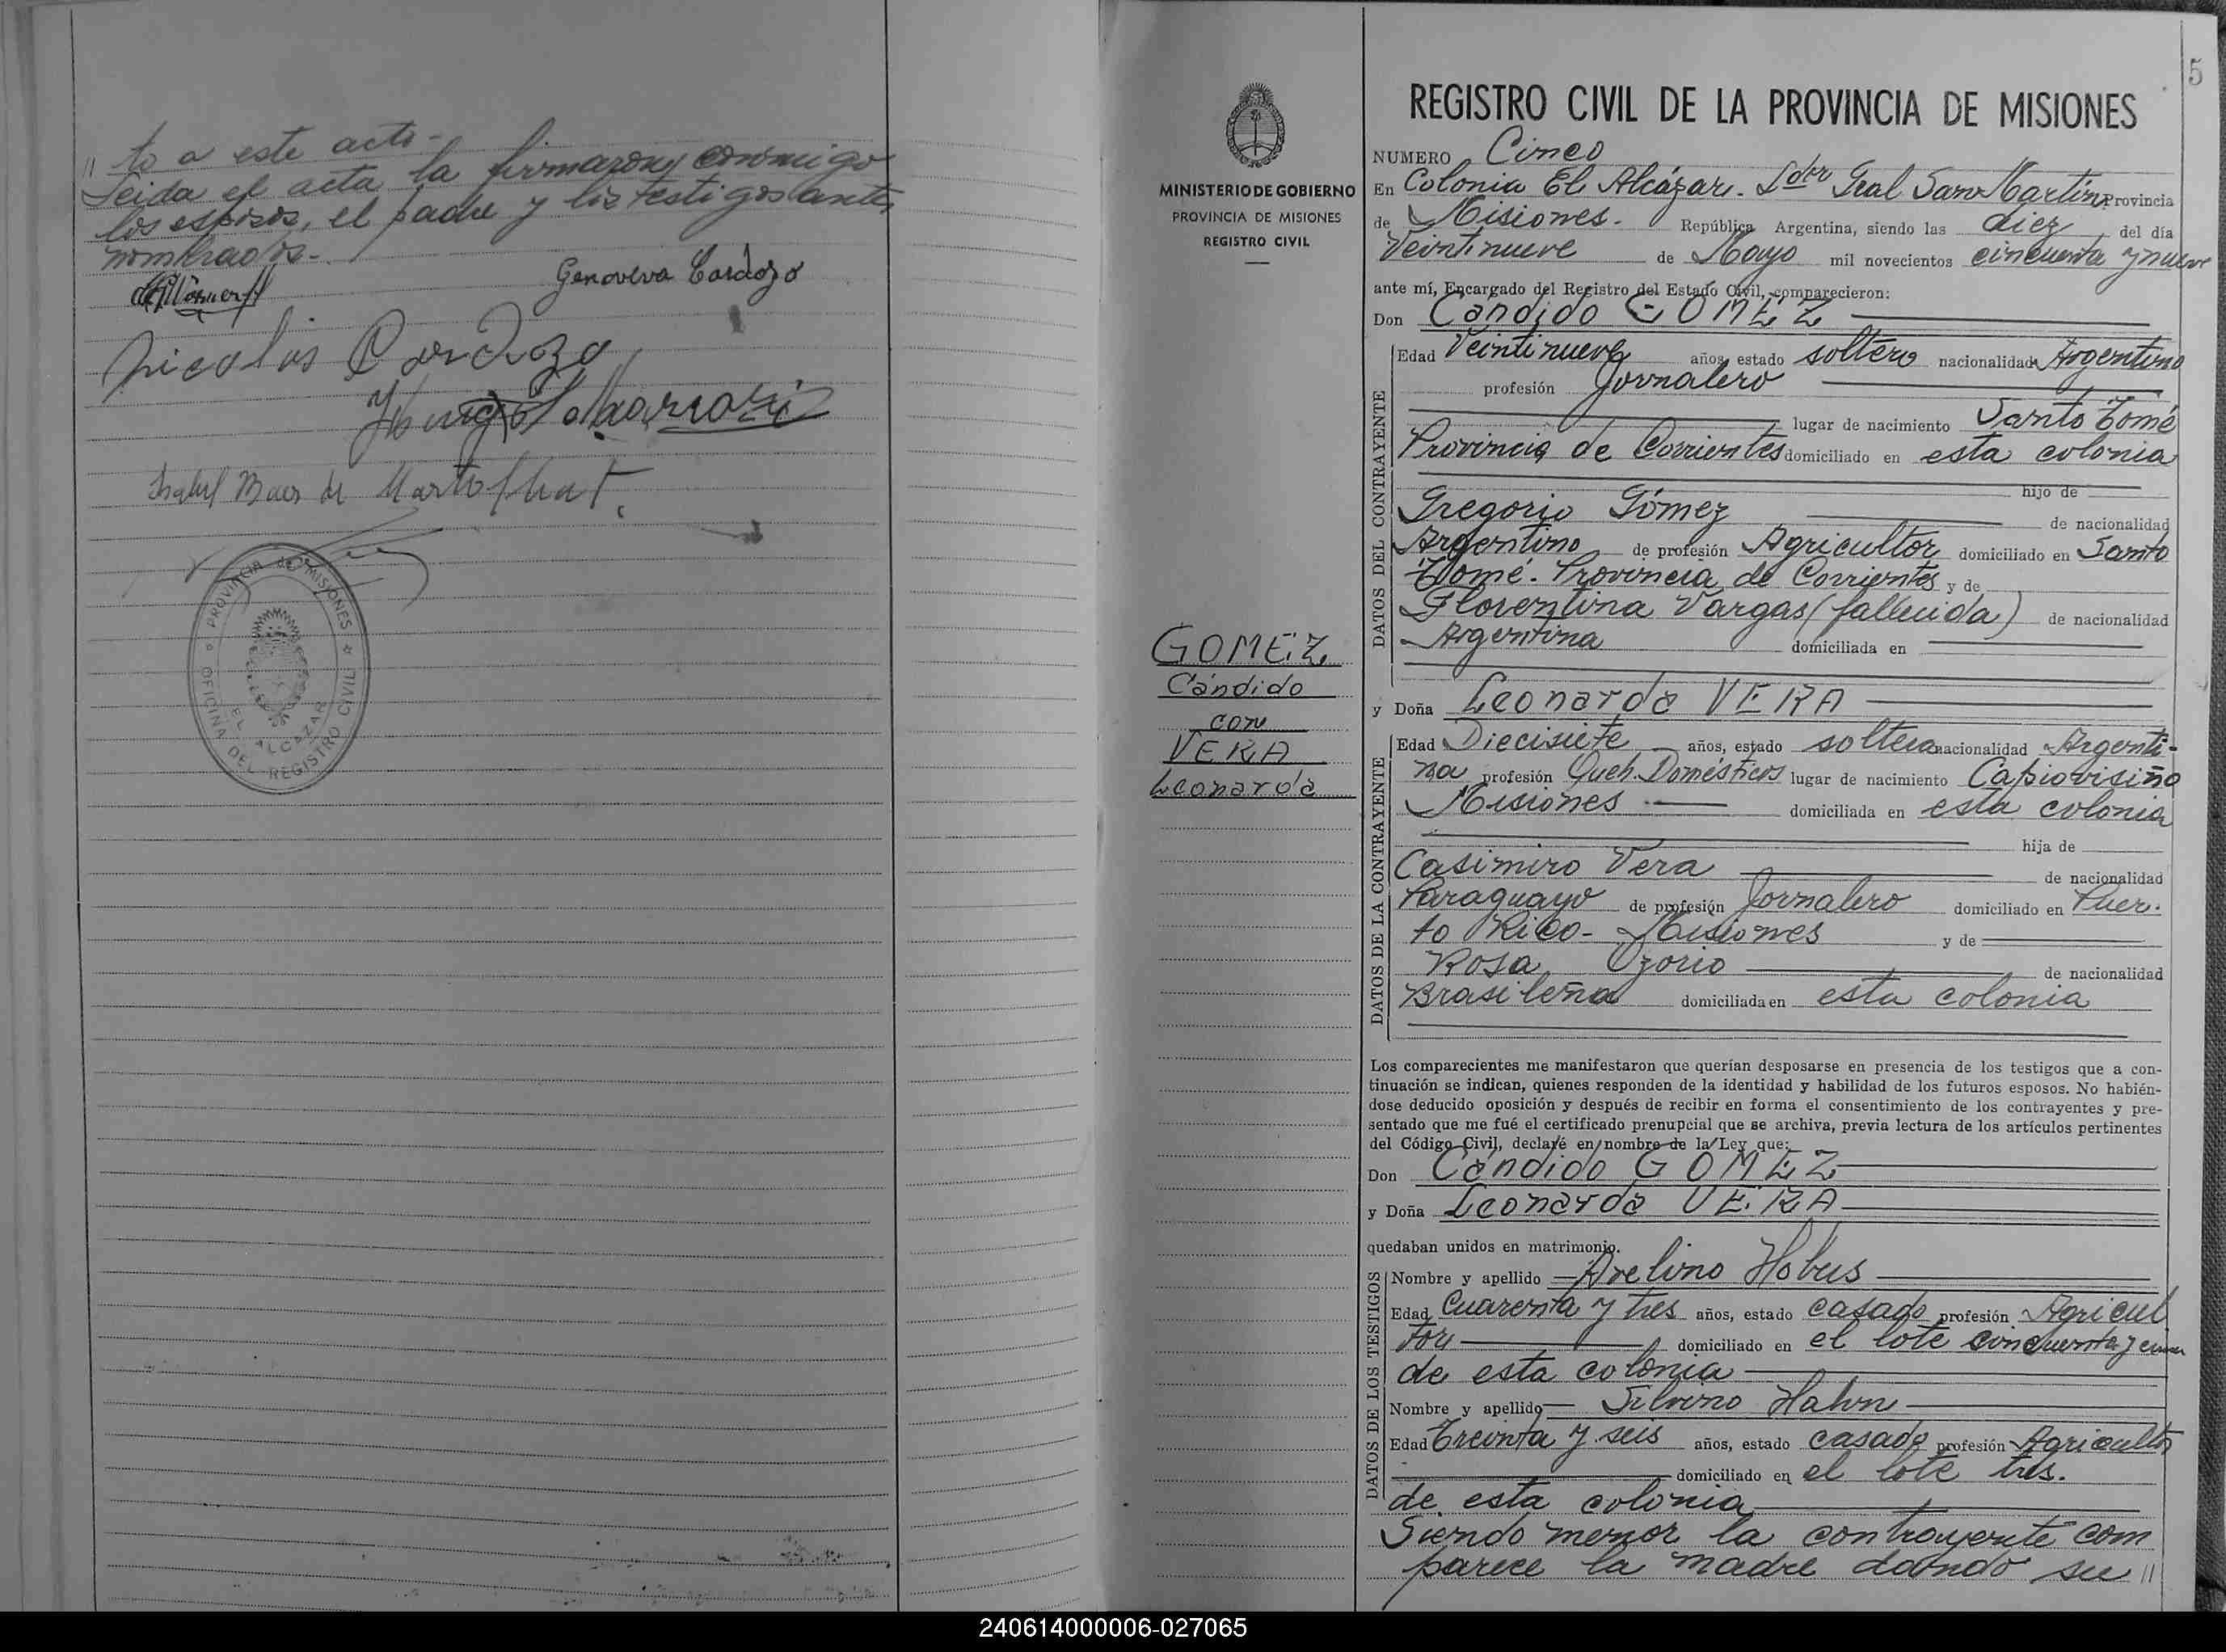 // to a este acto-
Leida el acta la firmaron conmigo
los esposos, el padre y los testigos antes
nombrados.-
Genoveva Cardozo
Nicolas Cardozo
Isabel Baez de
PROVINCIA de MISIONES
OFICINA DEL REGISTRO CIVIL
EL ALCAZAR
5
MINISTERIO DE GOBIERNO
PROVINCIA DE MISIONES
REGISTRO CIVIL
GOMEZ
Cándido
con
VERA
Leonarda
REGISTRO CIVIL DE LA PROVINCIA DE MISIONES
NUMERO Cinco
En Colonia El Alcázar - Ldor Gral San Martin Provincia
de Misiones. República Argentina, siendo las diez del día
Veintinueve de Mayo mil novecientos cincuenta y nueve
ante mí, Encargado del Registro del Estado Civil, comparecieron:
Don Cándido GOMEZ
DATOS DEL CONTRAYENTE
Edad Veintinueve años, estado soltero nacionalidad Argentino
profesión Jornalero
lugar de nacimiento Santo Tomé
Provincia de Corrientes domiciliado en esta colonia
hijo de
Gregorio Gómez de nacionalidad
Argentino de profesión Agricultor domiciliado en Santo
Tomé - Provincia de Corrientes y de
Florentina Vargas (fallecida) de nacionalidad
Argentina domiciliada en
y Doña Leonarda VERA
DATOS DE LA CONTRAYENTE
Edad Diecisiete años, estado soltera nacionalidad Argenti-
na profesión Queh. Domésticos lugar de nacimiento Capiovisiño
Misiones domiciliada en esta colonia
hija de
Casimiro Vera de nacionalidad
Paraguayo de profesión Jornalero domiciliado en Puer-
to Rico - Misiones y de
Rosa Ozorio de nacionalidad
Brasileña domiciliada en esta colonia
Los comparecientes me manifestaron que querían desposarse en presencia de los testigos que a con-
tinuación se indican, quienes responden de la identidad y habilidad de los futuros esposos. No habién-
dose deducido oposición y después de recibir en forma el consentimiento de los contrayentes y pre-
sentado que me fué el certificado prenupcial que se archiva, previa lectura de los artículos pertinentes
del Código Civil, declaré en nombre de la Ley que:
Don Cándido GOMEZ
y Doña Leonarda VERA
quedaban unidos en matrimonio.
DATOS DE LOS TESTIGOS
Nombre y apellido Avelino Hobus
Edad Cuarenta y tres años, estado casado profesión Agricul
tor domiciliado en el lote cincuenta y
de esta colonia
Nombre y apellido Silvino Hahn
Edad Treinta y seis años, estado casado profesión Agricultor
domiciliado en el lote tres.
de esta colonia
Siendo menor la contrayente com
parece la madre dando su //
240614000006-027065